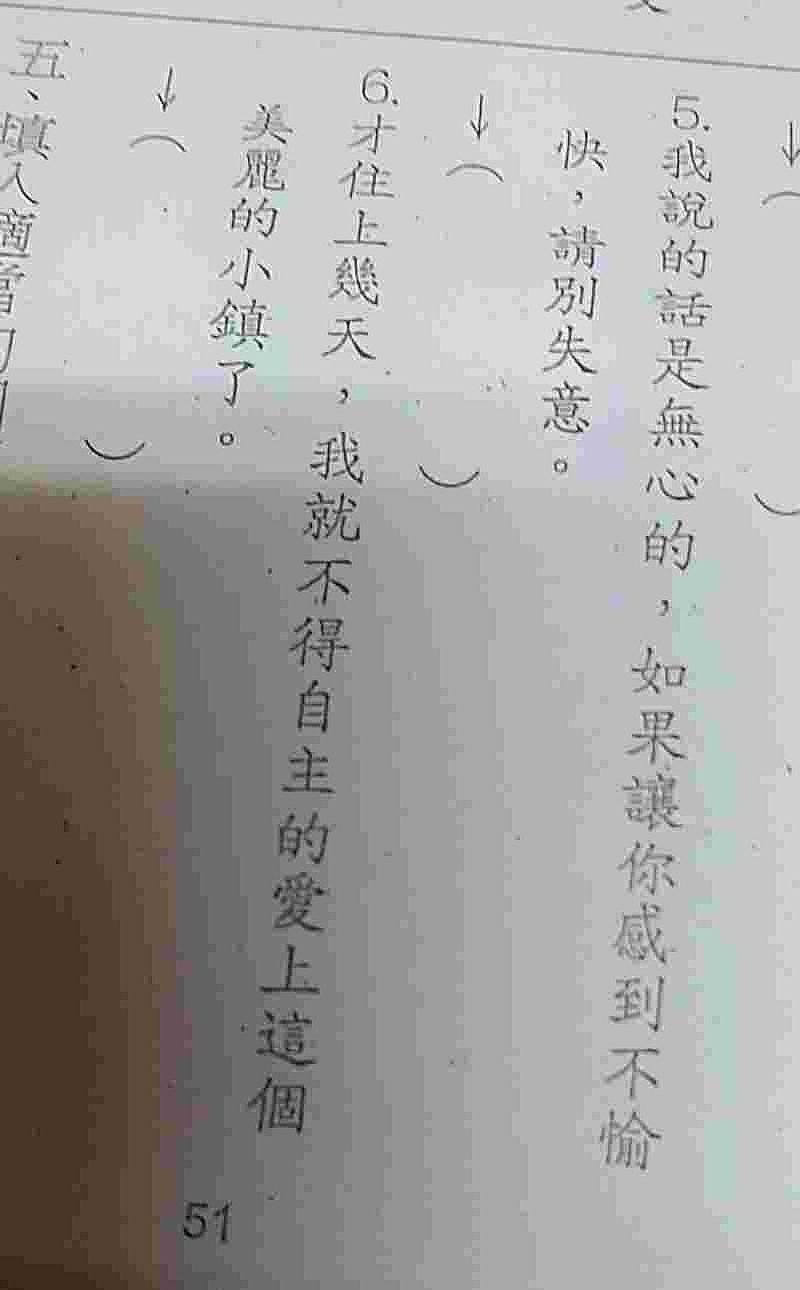 5.我說的話是無心的，如果讓你感到不愉
快，請別失意。
↓（　　　）
6.才住上幾天，我就不得自主的愛上這個
美麗的小鎮了。
↓（　　　）
五、填入適當的
51